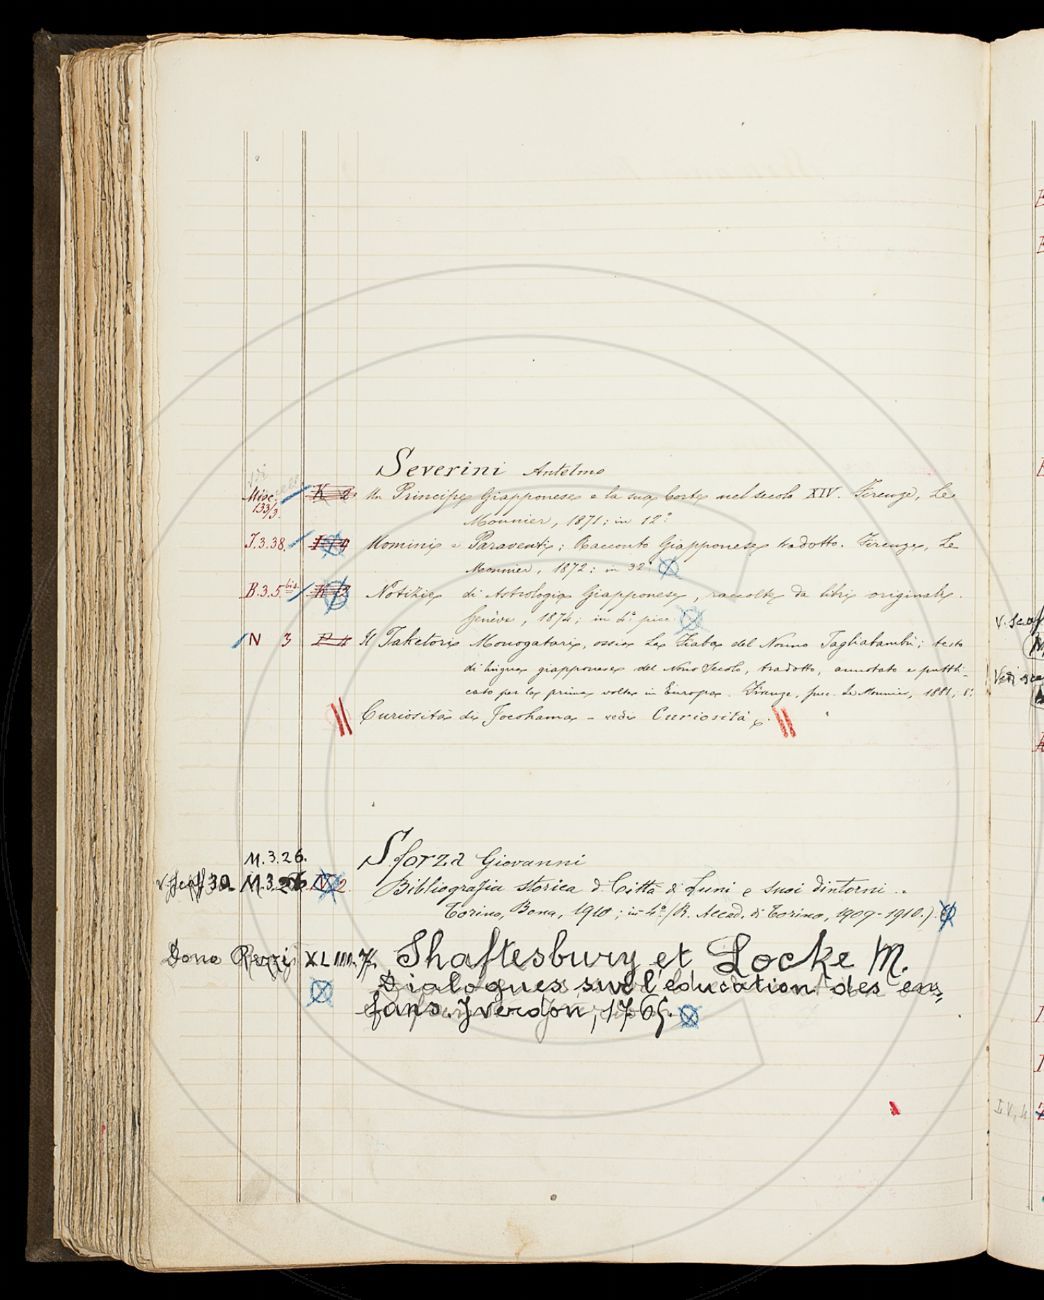 Severini Antelmo
Misc. 133/3. K 2 Un Principe Giapponese e la sua Corte nel secolo XIV. Firenze, Le
Monnier, 1871; in 12º
I.3.38. Komini e Paraventi; Racconto Giapponese tradotto. Firenze, Le
Monnier, 1872; in 32º
B.3.5 bis Notizie di Astrologia Giapponese, raccolte da libri originali.
Genève, 1874; in 4º picc.
N 3 Il Taketori Monogatari, ossia La Fiaba del Nonno Tagliabambù; testo
di lingua giapponese del Nono Secolo, tradotto, annotato e pubbli-
cato per la prima volta in Europa. Firenze, succ. Le Monnier, 1881, 8º
Curiosità di Jocohama - vedi Curiosità
M.3.26. Sforza Giovanni
M.3.26 Bibliografia storica d. Città di Luni e suoi dintorni.
Torino, Bona, 1910; in-4º (R. Accad. di Torino, 1909-1910.)
Dono XLIII.7. Shaftesbury et Locke M.
Dialogues sur l'éducation des en=
fans. Yverdon, 1765.